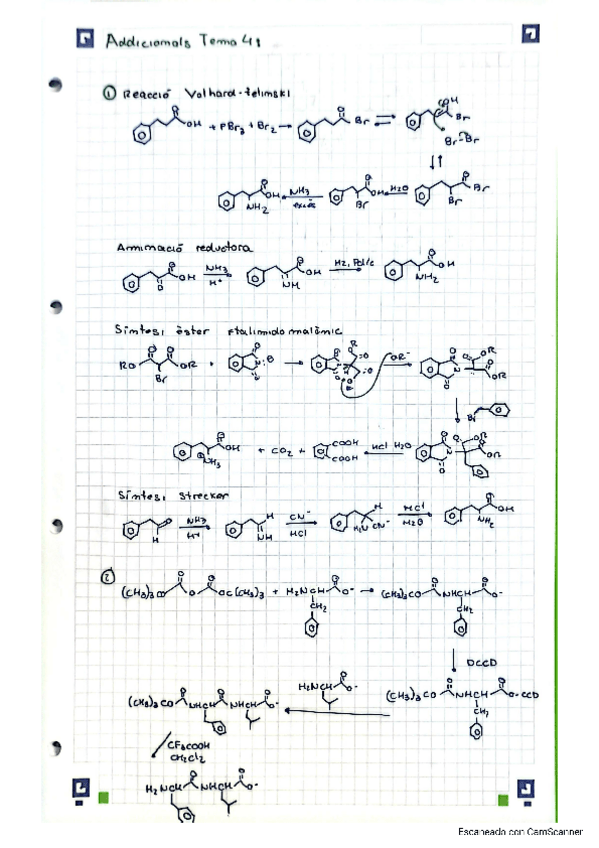 Addicionals Tema 41
① Reacció Volhard-Zelinski
OH + PBr3 + Br2 → O Br ⇌ OH Br
Br-Br
O OH NH2 ← NH3 excés O OH Br ← H2O O Br Br
Aminació reductora
O OH O → NH3 H+ → O OH NH → H2, Pd/C → O OH NH2
Síntesi èster ftalimidomalònic
RO O O OR Br + O N O → OR⁻ O N O OR OR
Br
O OH NH3 + CO2 + COOH COOH ← HCl H2O
Síntesi Strecker
O H → NH3 H+ → H NH → CN⁻ HCl → H H2N CN → HCl H2O → O OH NH2
②
(CH3)3CO O O O OC(CH3)3 + H2NCH O O⁻ → (CH3)3CO O NHCH O O⁻
CH2 CH2
DCCD
H2NCH O O⁻ (CH3)3CO O NHCH O O-CCD
CH2
(CH3)3CO O NHCH O NHCH O O⁻
CF3COOH
CH2Cl2
H2NCH O NHCH O O⁻
Escaneado con CamScanner